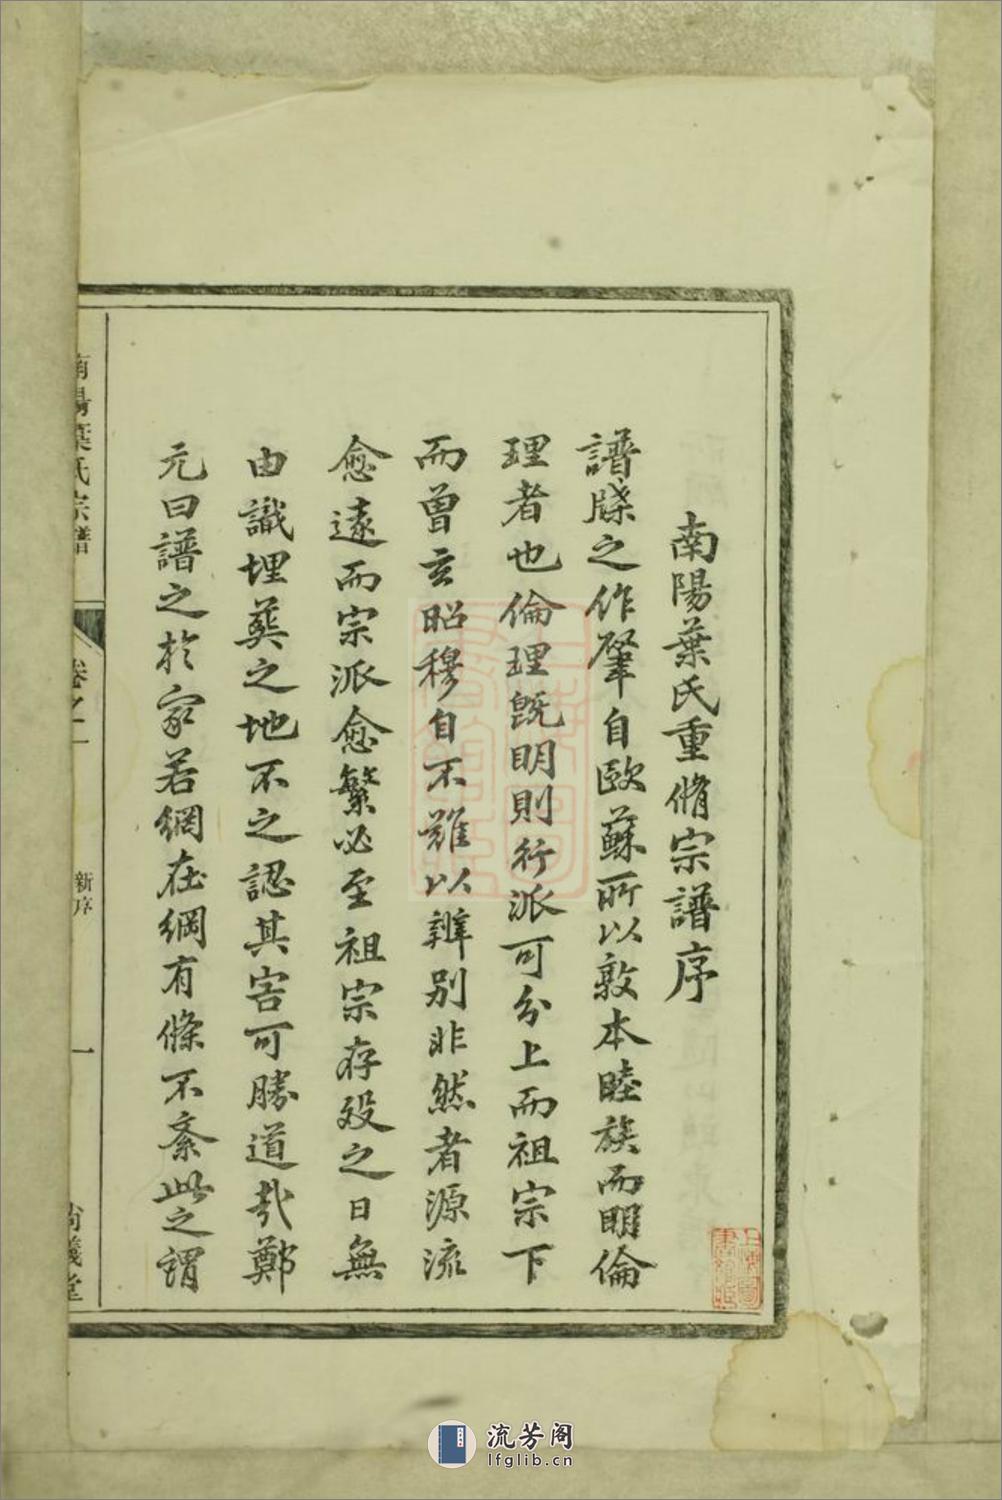 南陽葉氏重脩宗譜序
譜牒之作肇自歐蘇所以敦本睦族而明倫
理者也倫理既明則行派可分上而祖宗下
而曾玄昭穆自不難以辨別非然者源流
愈遠而宗派愈繁必至祖宗存歿之日無
由識埋葬之地不之認其害可勝道哉鄭
元曰譜之於家若網在綱有條不紊此之謂
南陽葉氏宗譜
卷之一
新序
一
尚義堂
流芳阁
lfglib.cn